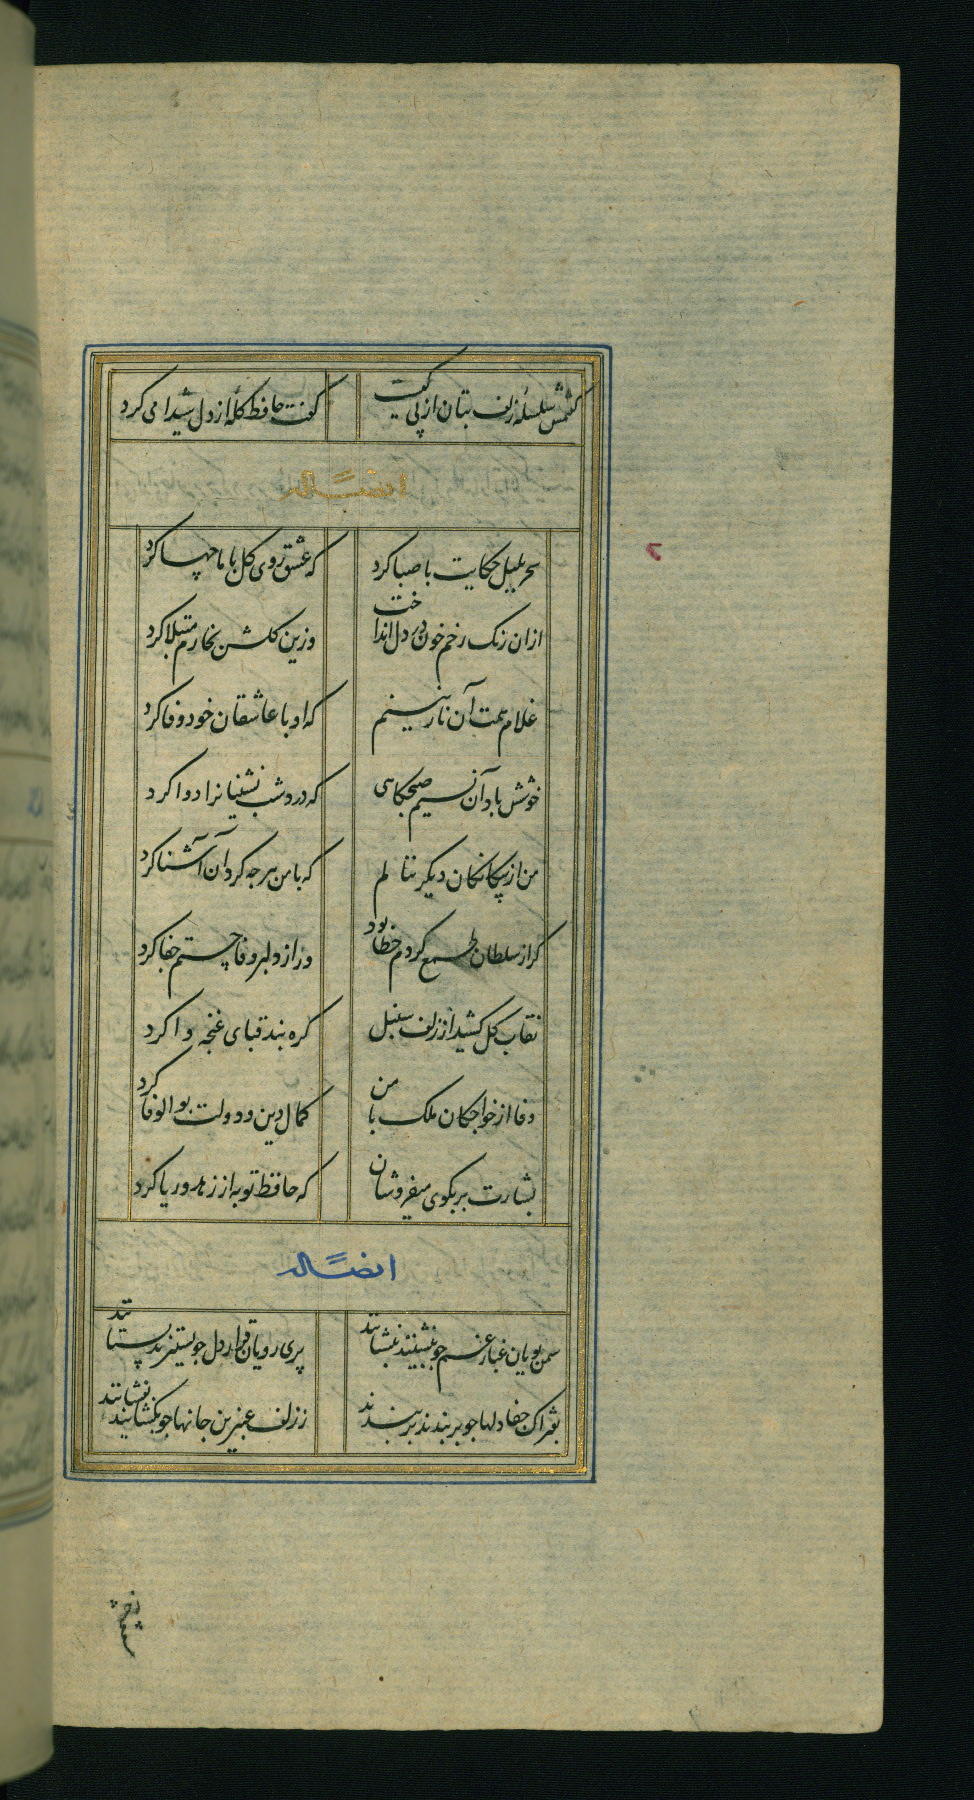 کفتمش سلسلهٔ زلف بتان از پی کیست کفت حافظ کله از دل شیدا می کرد
ایضاً له
سحر بلبل حکایت با صبا کرد که عشق روی کل با ما چها کرد
ازان رنک رخم خون در دل انداخت وزین کلشن بخارم مبتلا کرد
غلام همت آن نازنینم که او با عاشقان خود وفا کرد
خوشش باد آن نسیم صبحکاهی که درد شب نشینانرا دوا کرد
من از بیکانکان دیکر ننالم که با من هرجه کرد آن آشنا کرد
کر از سلطان طمع کردم خطا بود ور از دلبر وفا جستم جفا کرد
نقاب کل کشید از زلف سنبل کره بند قبای غنچه وا کرد
وفا از خواجکان ملک با من کمال دین و دولت بوالوفا کرد
بشارت بر بکوی میفروشان که حافظ توبه از زهد و ریا کرد
ایضاً له
سمن بویان غبار غم جو بنشینند بنشانند پری رویان قرار دل جو بستیزند بستانند
بفتراک جفا دلها جو بربندند بربندند ز زلف عنبرین جانها جو بکشایند بفشانند